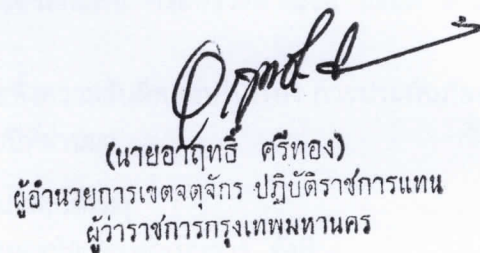 (นายอาฤทธิ์ ศรีทอง)
ผู้อำนวยการเขตจตุจักร ปฏิบัติราชการแทน
ผู้ว่าราชการกรุงเทพมหานคร